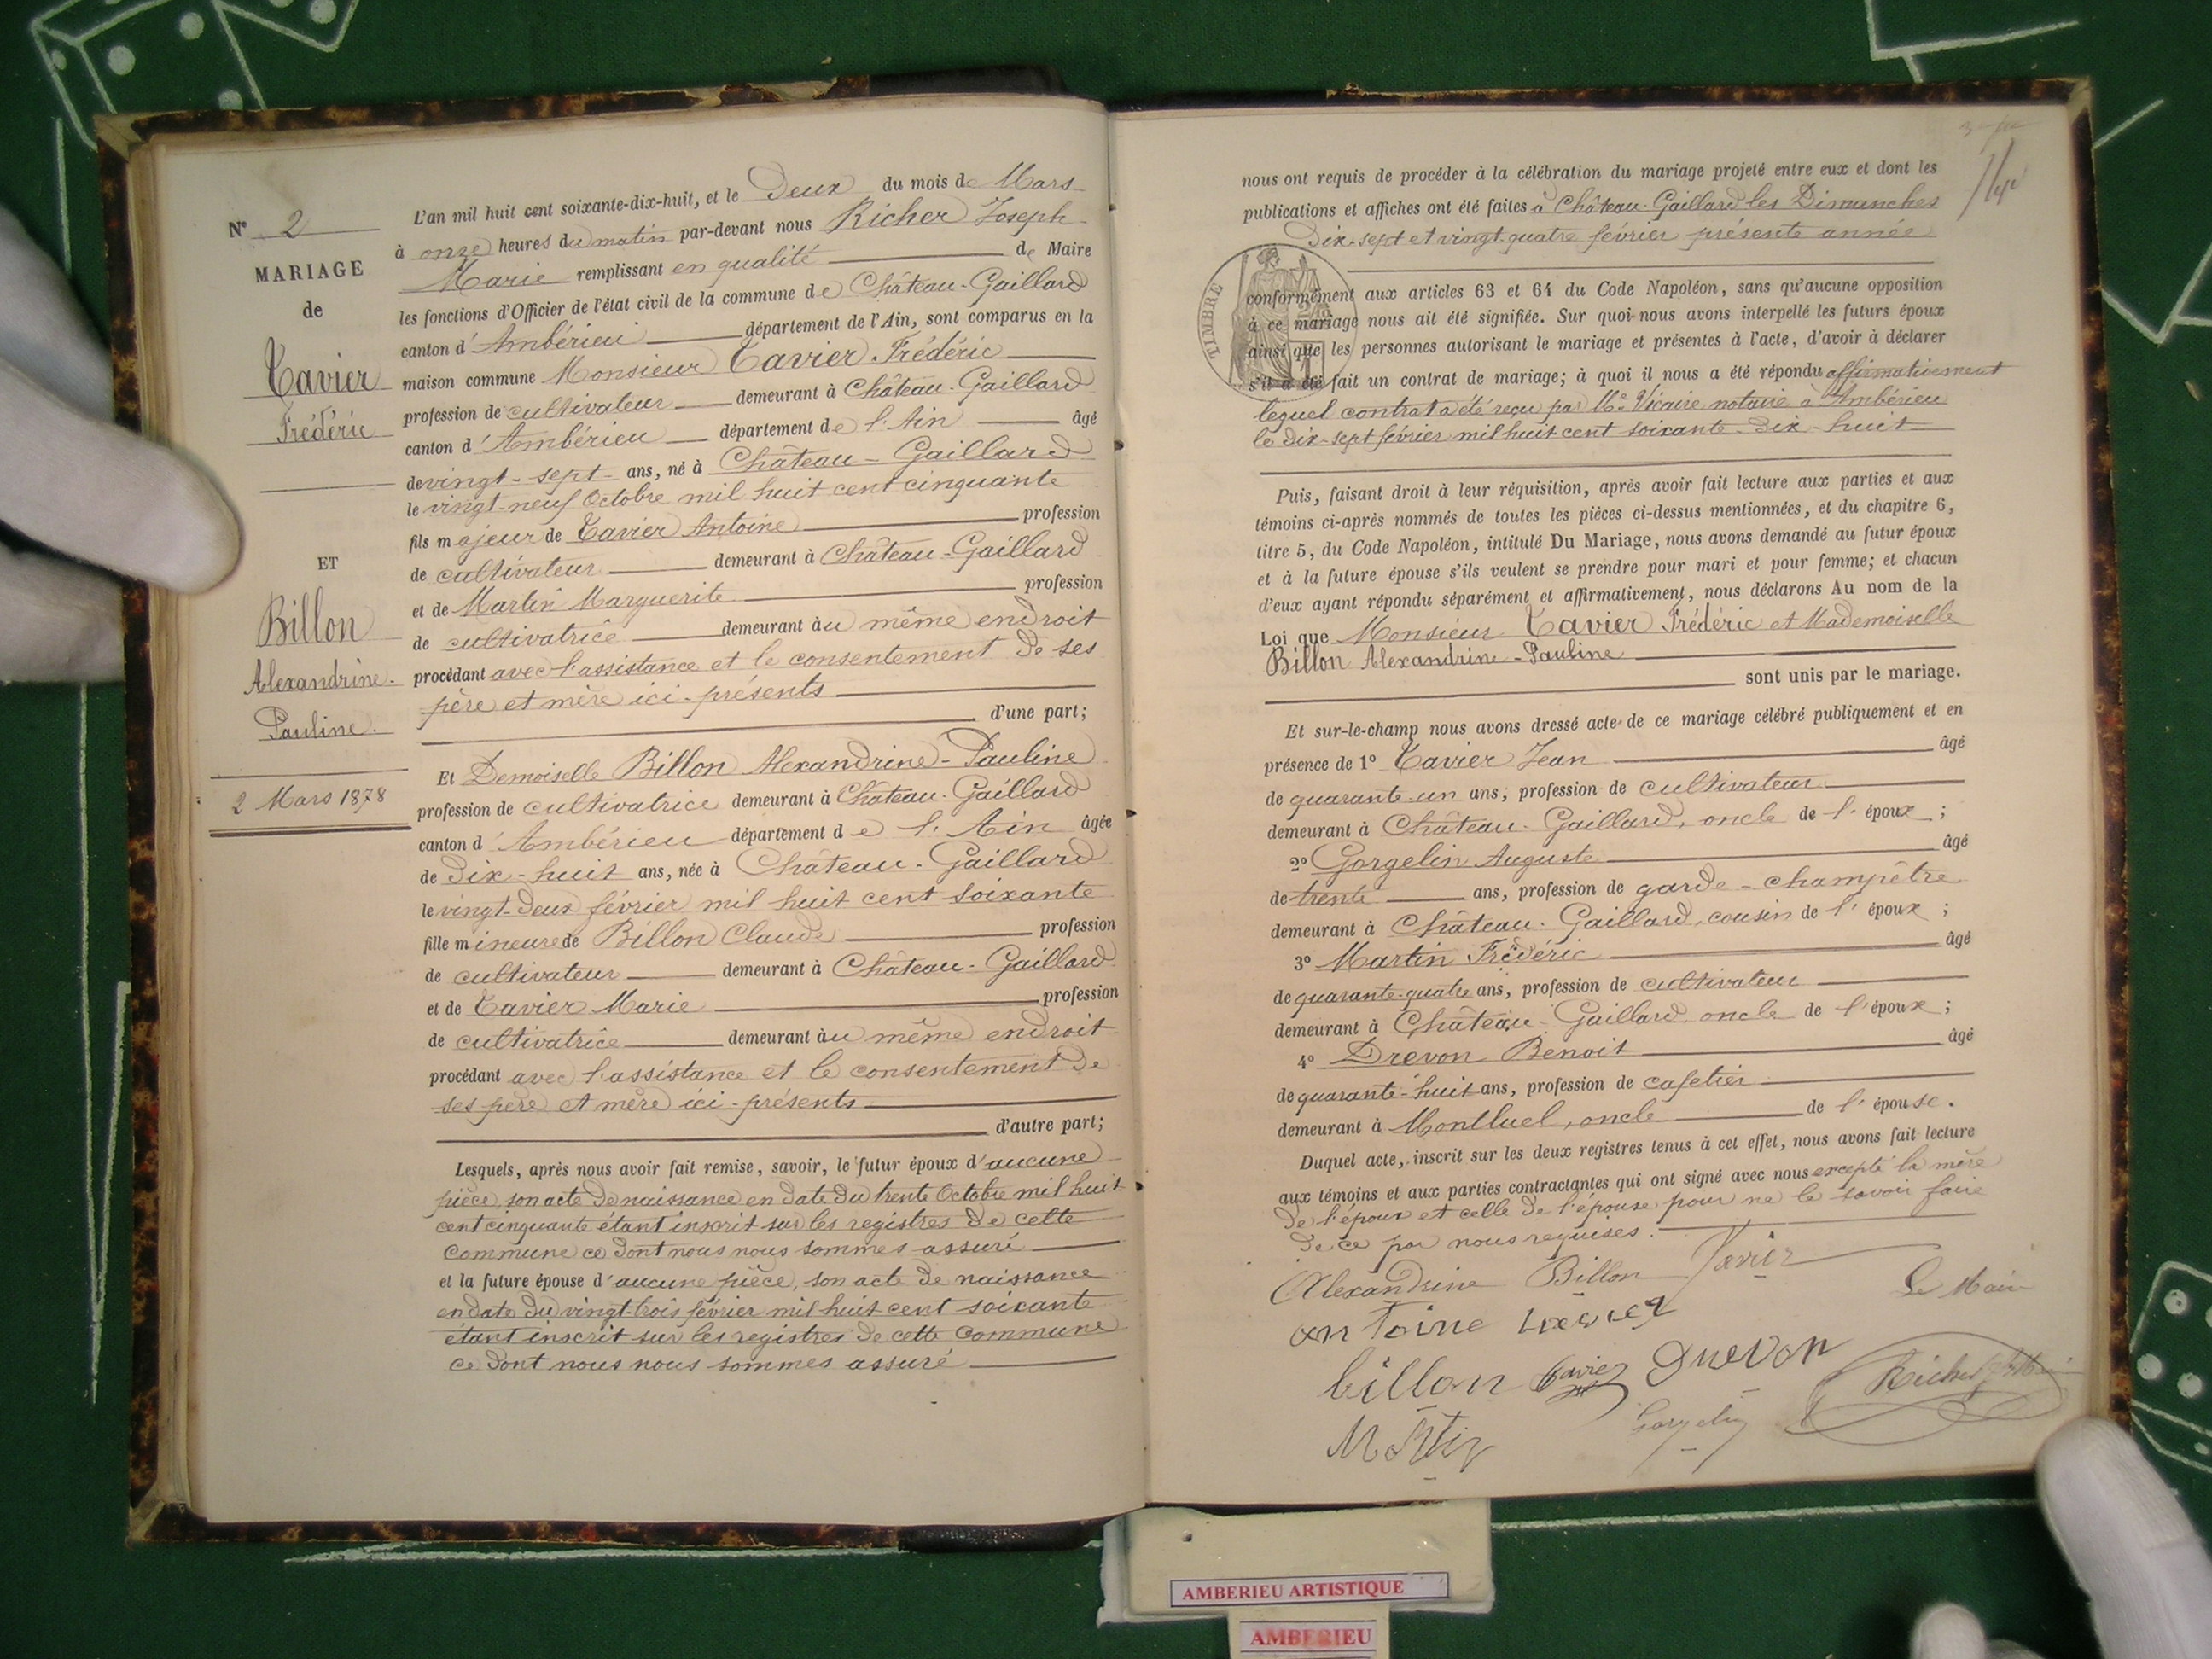 N° 2
MARIAGE
de
Tavier
Frédéric
ET
Billon
Alexandrine-
Pauline.
2 Mars 1878
L'an mil huit cent soixante-dix-huit, et le Deux du mois de Mars
à onze heures du matin par-devant nous Richer Joseph-
Marie remplissant en qualité de Maire
les fonctions d'Officier de l'état civil de la commune de Château-Gaillard
canton d'Ambérieu département de l'Ain, sont comparus en la
maison commune Monsieur Tavier Frédéric
profession de cultivateur demeurant à Château-Gaillard
canton d'Ambérieu département de l'Ain âgé
de vingt-sept ans, né à Château-Gaillard
le vingt-neuf Octobre mil huit cent cinquante
fils majeur de Tavier Antoine profession
de cultivateur demeurant à Château-Gaillard
et de Martin Marguerite profession
de cultivatrice demeurant au même endroit
procédant avec l'assistance et le consentement de ses
père et mère ici-présents
d'une part;
Et Demoiselle Billon Alexandrine-Pauline
profession de cultivatrice demeurant à Château-Gaillard
canton d'Ambérieu département de l'Ain âgée
de Dix-huit ans, née à Château-Gaillard
le vingt-deux février mil huit cent soixante
fille mineure de Billon Claude profession
de cultivateur demeurant à Château-Gaillard
et de Tavier Marie profession
de cultivatrice demeurant au même endroit
procédant avec l'assistance et le consentement de
ses père et mère ici-présents
d'autre part;
Lesquels, après nous avoir fait remise, savoir, le futur époux d'aucune
pièce, son acte de naissance en date du trente Octobre mil huit
cent cinquante étant inscrit sur les registres de cette
Commune ce dont nous nous sommes assuré
et la future épouse d'aucune pièce, son acte de naissance
en date du vingt-trois février mil huit cent soixante
étant inscrit sur les registres de cette Commune
ce dont nous nous sommes assuré
nous ont requis de procéder à la célébration du mariage projeté entre eux et dont les
publications et affiches ont été faites à Château-Gaillard les Dimanches
Dix-sept et vingt-quatre février présente année
TIMBRE
conformément aux articles 63 et 64 du Code Napoléon, sans qu'aucune opposition
à ce mariage nous ait été signifiée. Sur quoi nous avons interpellé les futurs époux
ainsi que les personnes autorisant le mariage et présentes à l'acte, d'avoir à déclarer
s'il a été fait un contrat de mariage; à quoi il nous a été répondu affirmativement
lequel contrat a été reçu par Me Vicaire notaire à Ambérieu
le dix-sept février mil huit cent soixante-dix-huit
Puis, faisant droit à leur réquisition, après avoir fait lecture aux parties et aux
témoins ci-après nommés de toutes les pièces ci-dessus mentionnées, et du chapitre 6,
titre 5, du Code Napoléon, intitulé Du Mariage, nous avons demandé au futur époux
et à la future épouse s'ils veulent se prendre pour mari et pour femme; et chacun
d'eux ayant répondu séparément et affirmativement, nous déclarons Au nom de la
Loi que Monsieur Tavier Frédéric et Mademoiselle
Billon Alexandrine-Pauline
sont unis par le mariage.
Et sur-le-champ nous avons dressé acte de ce mariage célébré publiquement et en
présence de 1° Tavier Jean âgé
de quarante-un ans, profession de cultivateur
demeurant à Château-Gaillard, oncle de l'époux;
2° Gorgelin Auguste âgé
de trente ans, profession de garde-champêtre
demeurant à Château-Gaillard, cousin de l'époux;
3° Martin Frédéric âgé
de quarante-quatre ans, profession de cultivateur
demeurant à Château-Gaillard oncle de l'époux;
4° Drevon Benoit âgé
de quarante-huit ans, profession de cafetier
demeurant à Montluel, oncle de l'épouse.
Duquel acte, inscrit sur les deux registres tenus à cet effet, nous avons fait lecture
aux témoins et aux parties contractantes qui ont signé avec nous excepté la mère
de l'époux et celle de l'épouse pour ne le savoir faire
de ce par nous requises.
Alexandrine Billon Tavier
Le Maire
antoine tavier
billon tavier Drevon
Richer
Martin Gorgelin
AMBERIEU ARTISTIQUE
AMBERIEU